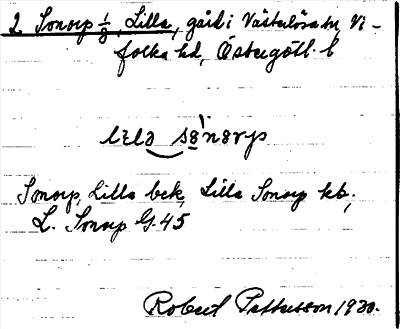 2 Sonorp 1/8, Lilla, gård i Västerlösa sn, Vi-
folka hd, Östergötl. l
lɩlə sǝ̀nǝrp
Sonorp, Lilla bek, Lilla Sonorp kb,
L. Sonorp G. 45
Robert Pettersson 1930.